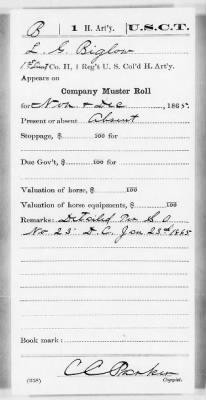 B | 1 H. Art'y. | U.S.C.T.
L. G. Biglow
1st Lieut Co. H, 1 Reg't U. S. Col'd H. Art'y.
Appears on
Company Muster Roll
for Nov & Dec, 1865.
Present or absent Absent
Stoppage, $ 100 for
Due Gov't, $ 100 for
Valuation of horse, $ 100
Valuation of horse equipments, $ 100
Remarks: Detailed Per S O
No. 23 D. C. Jan 23rd 1865
Book mark:
C C Parker
(358) Copyist.